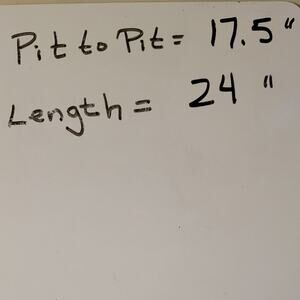 Pit to Pit = 17.5"
Length = 24"